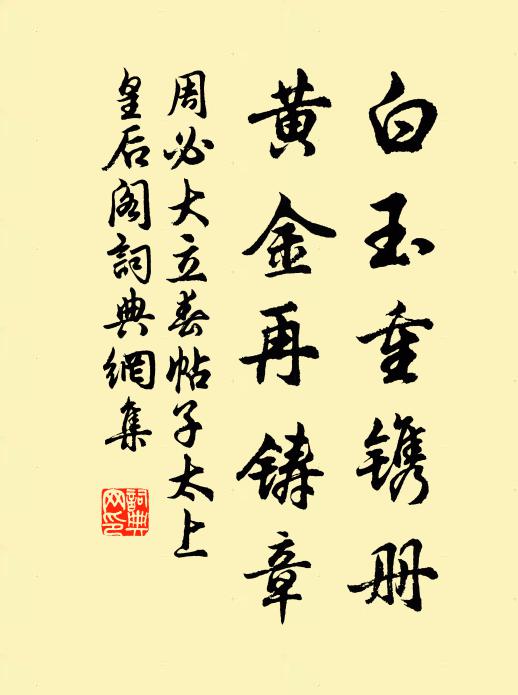 白玉重镌册
黄金再铸章
周必大立春帖子太上
皇后阁詞典網集
詞典网印